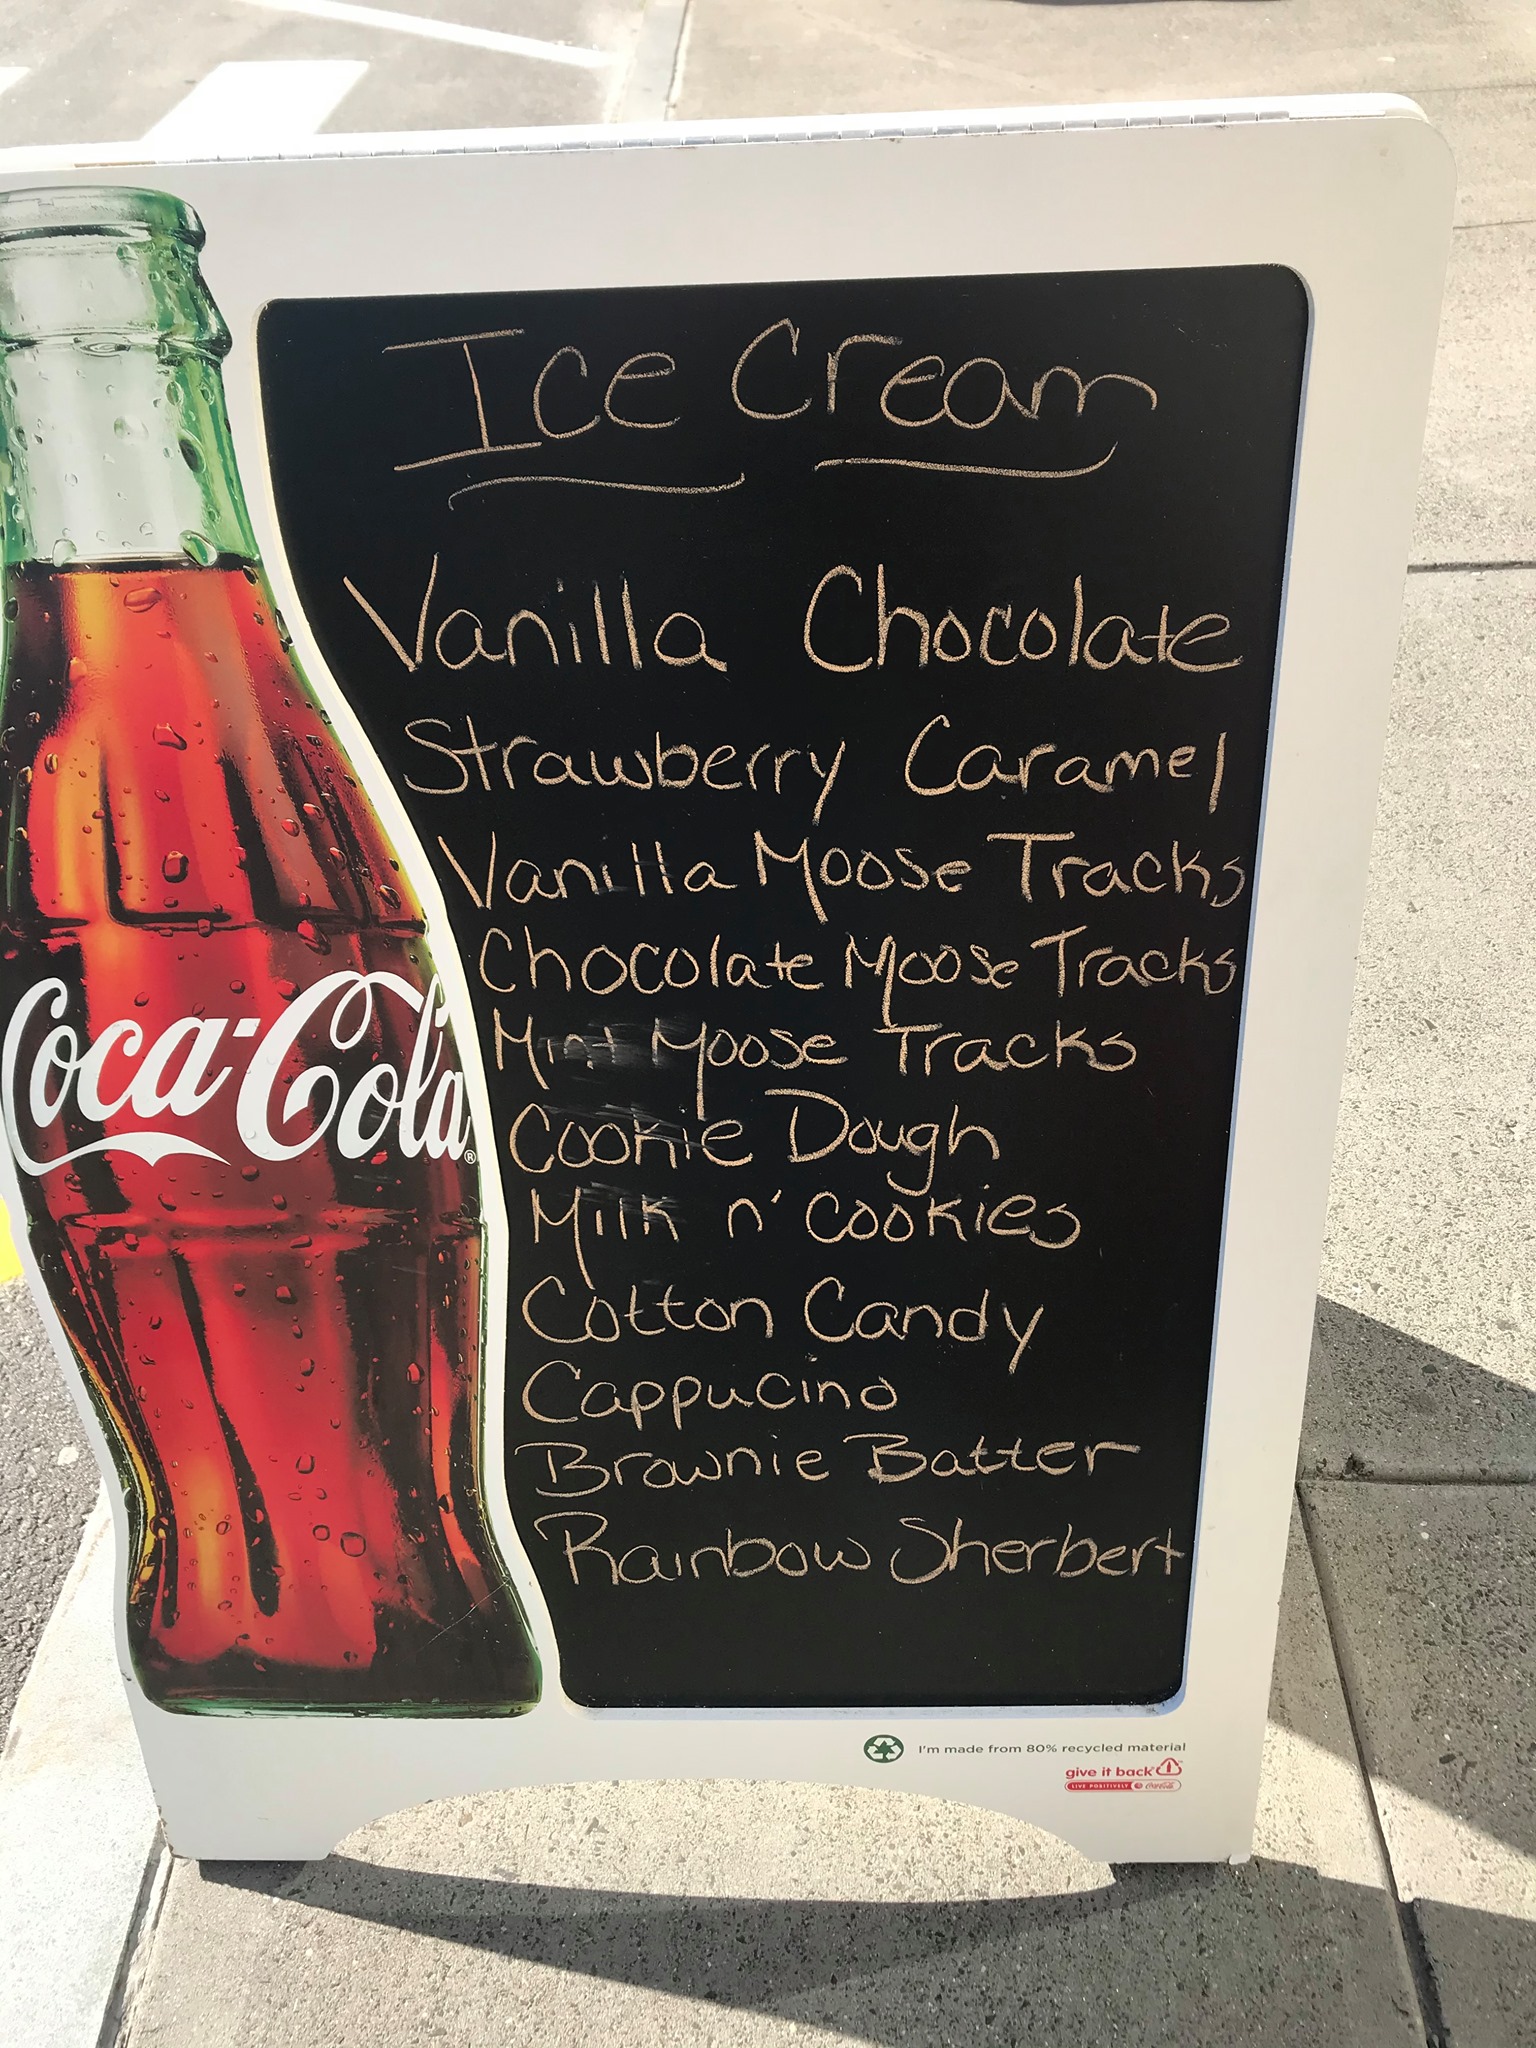 Ice Cream
Vanilla Chocolate
Strawberry Caramel
Vanilla Moose Tracks
Chocolate Moose Tracks
Mint Moose Tracks
Cookie Dough
Milk n' Cookies
Cotton Candy
Cappucino
Brownie Batter
Rainbow Sherbert
Coca-Cola®
I'm made from 80% recycled material
give it back™
LIVE POSITIVELY Coca-Cola